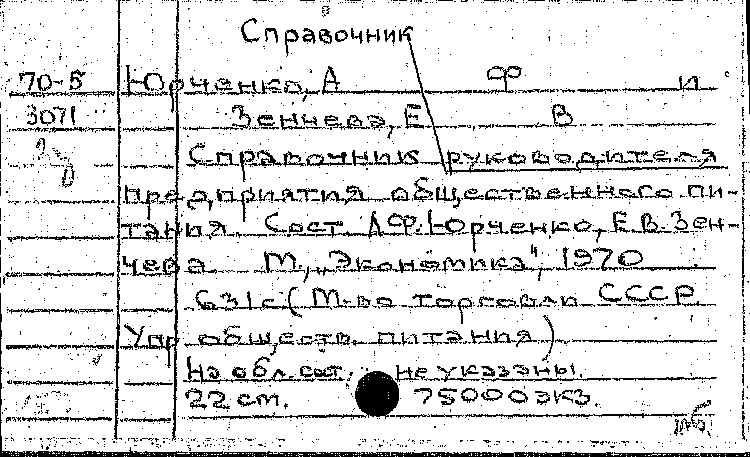 Справочник
70-5 Юрченко, А Ф и
3071 Зенчева, Е В
Справочник руководителя
предприятия общественного пи-
тания. Сост. А.Ф. Юрченко, Е.В. Зен-
чева. М., „Экономика", 1970
631 с (М-во торговли СССР
Упр обществ. питания)
На обл. сост. не указаны.
22 см. 75000 экз.